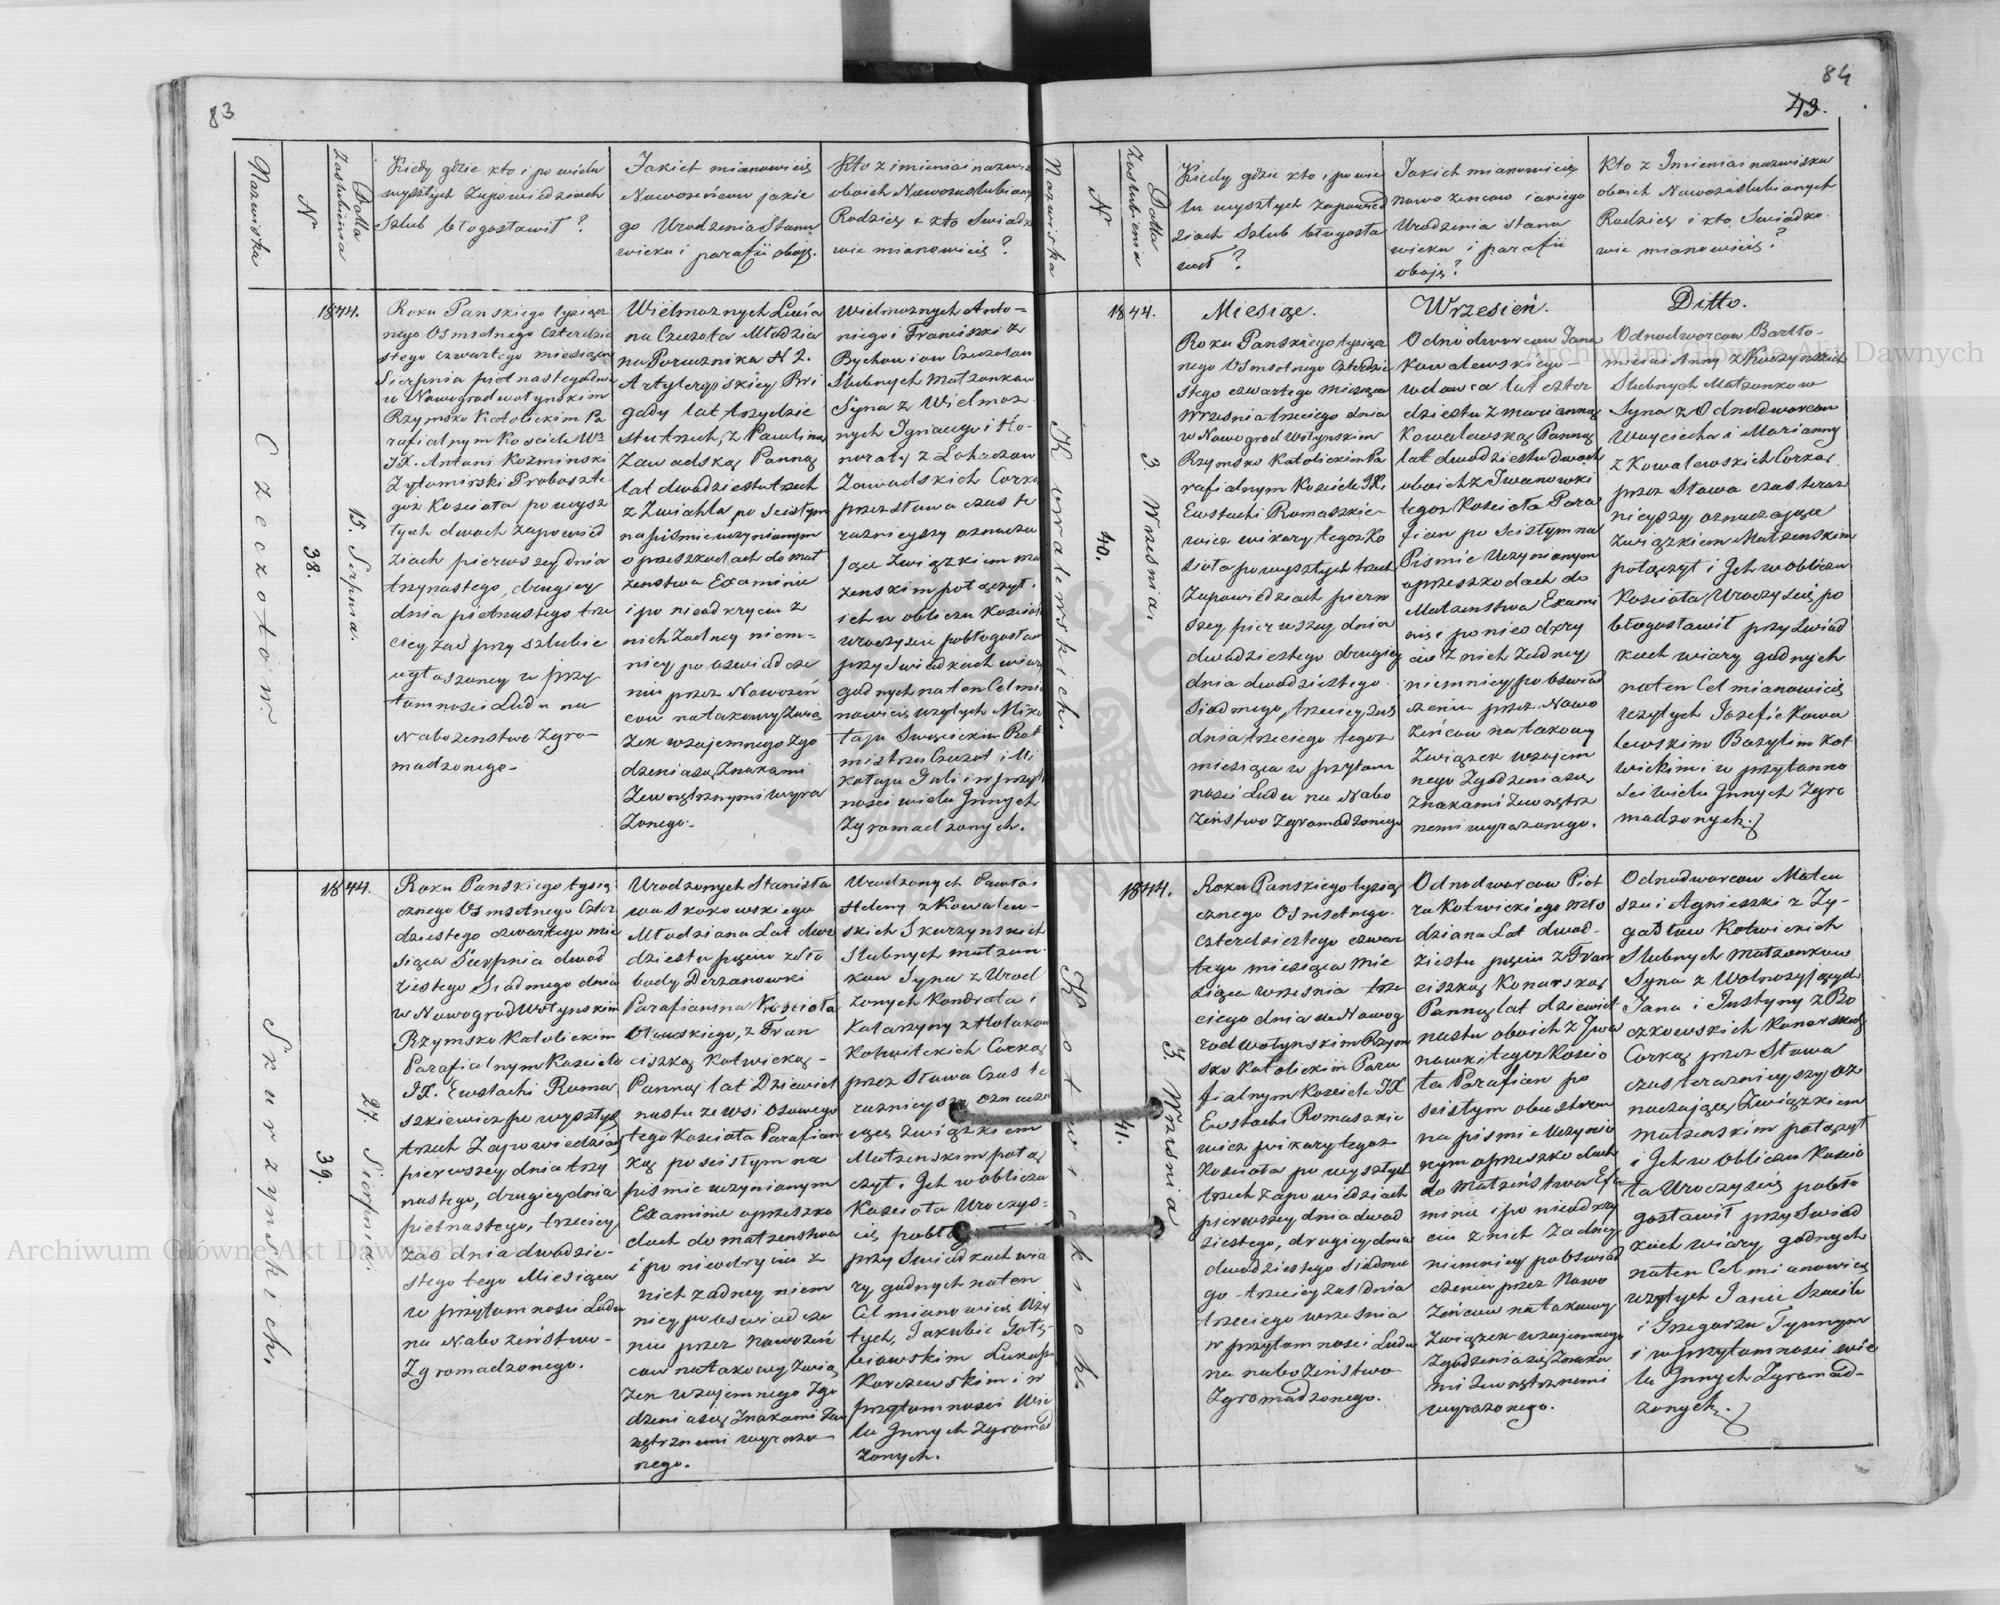 83
Nazwiska
N
Datta
zaslubienia
Kiedy gdzie kto i po wielu
wyszłych Zapowiedziach
Szlub błogosławił?
Jakich mianowicie
Nowożeńcow jakie
go Urodzenia Stanu
wieku i parafii oboje.
Kto z imienia i nazwis
oboich Nowozaslubiony
Rodziey i kto Swiadko
wie mianowicie?
Czeczotow.
38.
1844.
15. Sierpnia.
Roku Panskiego tysiącz
nego Osmsetnego czterdzie
stego czwartego miesiąca
Sierpnia pietnastego dnia
w Nowogrodwołynskim
Rzymsko Katolickim Pa
rafialnym Kosciele Wż
JX. Antoni Kozminski
Zytomirski Proboszcz
goż Kosciola po wysz
łych dwoch Zapowied
ziach pierwszey dnia
trzynastego, drugiey
dnia pietnastego trze
ciey zaś przy szlubie
ogłoszoney w przy
tomnosci Ludu na
Nabożenstwo Zgro-
madzonego.
Wielmoznych Lucia
na Czeczota Młodzia
na Porucznika N 2.
Artyleryiskiey Bri
gady lat trzydzie
stu trzech, z Pauliną
Zawadską Panną
lat dwadziestu trzech
z Zwiahla po scisłym
na pismie uczynionym
o przeszkodach do mał
zenstwa Examinie
i po nieodkryciu z
nich żadney niem-
niey po oswiadcze
niu przez Nowożeń
cow na takowy Zwią
zek wzajemnego zgo
dzenia się Znakami
Zewnętrznymi wyra
żonego.
Wielmoznych Anto-
niego i Franciszki z
Bychowcow Czeczotow
Slubnych Małżonkow
Syna z Wielmoz
nych Ignacego i Ho-
noraty z Łohaczow
Zawadskich Corką
przez słowa czas te
razniejszy oznacza
jące Związkiem mał
zenskim połączył i
ich w obliczu Kościoła
Uroczyscie pobłogosławił
przy Swiadkach wiary
godnych na ten Cel mia
nowicie wzytych Miko
łaju Swięcickim Rot
mistrzu Czeczot i Mi
kołaju Juli i w przyt
nosci wielu Jnnych
Zgromadzonych.
Skurzynskich.
39.
1844.
27. Sierpnia.
Roku Panskiego tysią
cznego Osmsetnego Czter
dziestego czwartego mie
siąca Sierpnia dwad
ziestego Siodmego dnia
w NowogrodWołynskim
Rzymsko Katolickim
Parafialnym Kosciele
JX. Eustachi Roma
szkiewicz po wyszłych
trzech Zapowiedziach
pierwszey dnia trzy
nastego, drugiey dnia
pietnastego, trzeciey
zaś dnia dwadzie-
stego tego Miesiąca
w przytomnosci Ludu
na Nabożeństwo-
Zgromadzonego.
Urodzonych Stanisła
wa Skokowskiego
Młodziana Lat dwu
dziestu pięciu z Sło
body Derzanowki
Parafianina Kosciola
Olewskiego, z Fran
ciszką Kotwicką-
Panną lat Dziewiet
nastu ze wsi Osowego
tego Kosciola Parafian
ką po scisłym na
pismie uczynionym
Examinie o przeszko
dach do małzenstwa
i po nieodkryciu z
nich żadney niem
niey po oswiadcze
niu przez Nowożeń
cow na takowy Zwią
zek wzajemnego Zgo
dzenia się Znakami Zew
nętrznemi wyrażo
nego.
Urodzonych Pawła i
Heleny z Kowalew-
skich Skurzynskich
Slubnych małżon
kow Syna z Urod
zonych Kondrata i
Katarzyny z Holakow
Kotwickich Corką
przez Słowa Czas te
raznieyszy oznacza
jące Związkiem
Małzenskim połą
czył i Jch w obliczu
Kosciola Uroczys-
cie pobło
przy Swiadkach wia
ry godnych na ten
Cel mianowicie Wzy
tych, Jakubie Goł
biowskim Łukaszu
Korczewskim i w
przytomnosci Wie
lu Jnnych Zgromad
zonych.
84
43.
Nazwiska
N
Datta
zaslubienia
Kiedy gdzie kto i po wie
lu wyszłych Zapowied
ziach Szlub błogosła
wił?
Jakich mianowicie
nowożencow iakiego
Urodzenia stanu
wieku i parafii
oboje?
Kto z Jmienia i nazwiska
oboich Nowozaslubionych
Rodziey i kto Swiadko
wie mianowicie?
Kowalewskich.
40.
1844.
3. Wrzesnia.
Miesiąc.
Wrzesień.
Ditto.
Roku Panskiego tysiącz
nego Osmsetnego Czterdzie
stego czwartego Miesiąca
Wrzesnia trzeciego dnia
w Nowogrod Wołynskim
Rzymsko Katolickim Pa
rafialnym Kosciele JX.
Eustachi Romaszkie-
wicz wikary tegoż Ko
sciola po wyszłych trzech
Zapowiedziach pierw
szey pierwszey dnia
dwadziestego drugiey
dnia dwadziestego
Siodmego, trzeciey zaś
dnia trzeciego tegoż
miesiąca w przytom
nosci Ludu na Nabo
żeństwo Zgromadzonego
Odnodworcow Jana
Kowalewskiego-
wdowca lat czter
dziestu z Marianną
Kowalewską Panną
lat dwudziestu dwóch
oboich z Jwanowki
tegoż Kosciola Para
fian po Scisłym na
Pismie Uczynionym
o przeszkodach do
Małzenstwa Exami
nie i po nieodkry
ciu z nich żadney
niemniey po oswiad
czeniu przez Nowo
żeńcow na takowy
Związek wzajem
nego Zgodzenia się
Znakami Zewnętrz
nemi wyrażonego.
Odnodworcow Bartło-
mieia i Anny z Kuczynskich
Slubnych Małżonkow
Syna z Odnodworcow
Woyciecha i Marianny
z Kowalewskich Corką
przez Słowa czas teraz
nieyszy oznaczające
Związkiem Małzenskim
połączył i Jch w obliczu
Kosciola Uroczyscie po
błogosławił przy Swiad
kach wiary godnych
na ten Cel mianowicie
wzytych Jozefie Kowa
lewskim Bazylim Kot
wickim i w przytomno
sci wielu Jnnych Zgro
madzonych.
Kotwickich.
41.
1844.
3. Wrzesnia
Roku Panskiego tysią
cznego Osmsetnego
Czterdziestego czwar
tego miesiąca Mie
siąca wrzesnia trze
ciego dnia w Nowog
rodwołynskim Rzym
sko Katolickim Para
fialnym Kosciele JX
Eustachi Romaszkie
wicz wikary tegoż
Kosciola po wyszłych
trzech zapowiedziach
pierwszey dnia dwad
ziestego, drugiey dnia
dwadziestego Siodme
go trzeciey zaś dnia
trzeciego wrzesnia
w przytomnosci Ludu
na nabożeństwo
Zgromadzonego.
Odnodworcow Piot
ra Kotwickiego Mło
dziana Lat dwad-
ziestu pięciu z Fran
ciszką Konarską
Panną lat dziewięt
nastu oboich z Jwa
nowki tegoż Koscio
ła Parafian po
scisłym obustron
na pismie Uczynio
nym o przeszkodach
do Małzeństwa Exa
minie i po nieodkry
ciu z nich żadney
niemniey po oswiad
czeniu przez Nowo
żeńcow na takowy
Związek wzajemnego
Zgodzenia się Znaka
mi Zewnętrznemi
wyrażonego.
Odnodworcow Mateu
sza i Agnieszki z Zy-
gadłow Kotwickich
Slubnych Małżonkow
Syna z Wolnozyjących
Jana i Justyny z Bo
czkowskich Konarskich
Corką przez Słowa
czas teraznieyszy oz
naczające Związkiem
małzenskim połączył
i Jch w Obliczu Koscio
ła Uroczyscie pobło
gosławił przy Swiad
kach wiary godnych
na ten Cel mianowicie
wzytych Janie
i Grzegorzu Tynnym
i w przytomnosci wie
lu Jnnych Zgromad-
zonych.
Archiwum Główne Akt Dawnych
Archiwum Główne Akt Dawnych